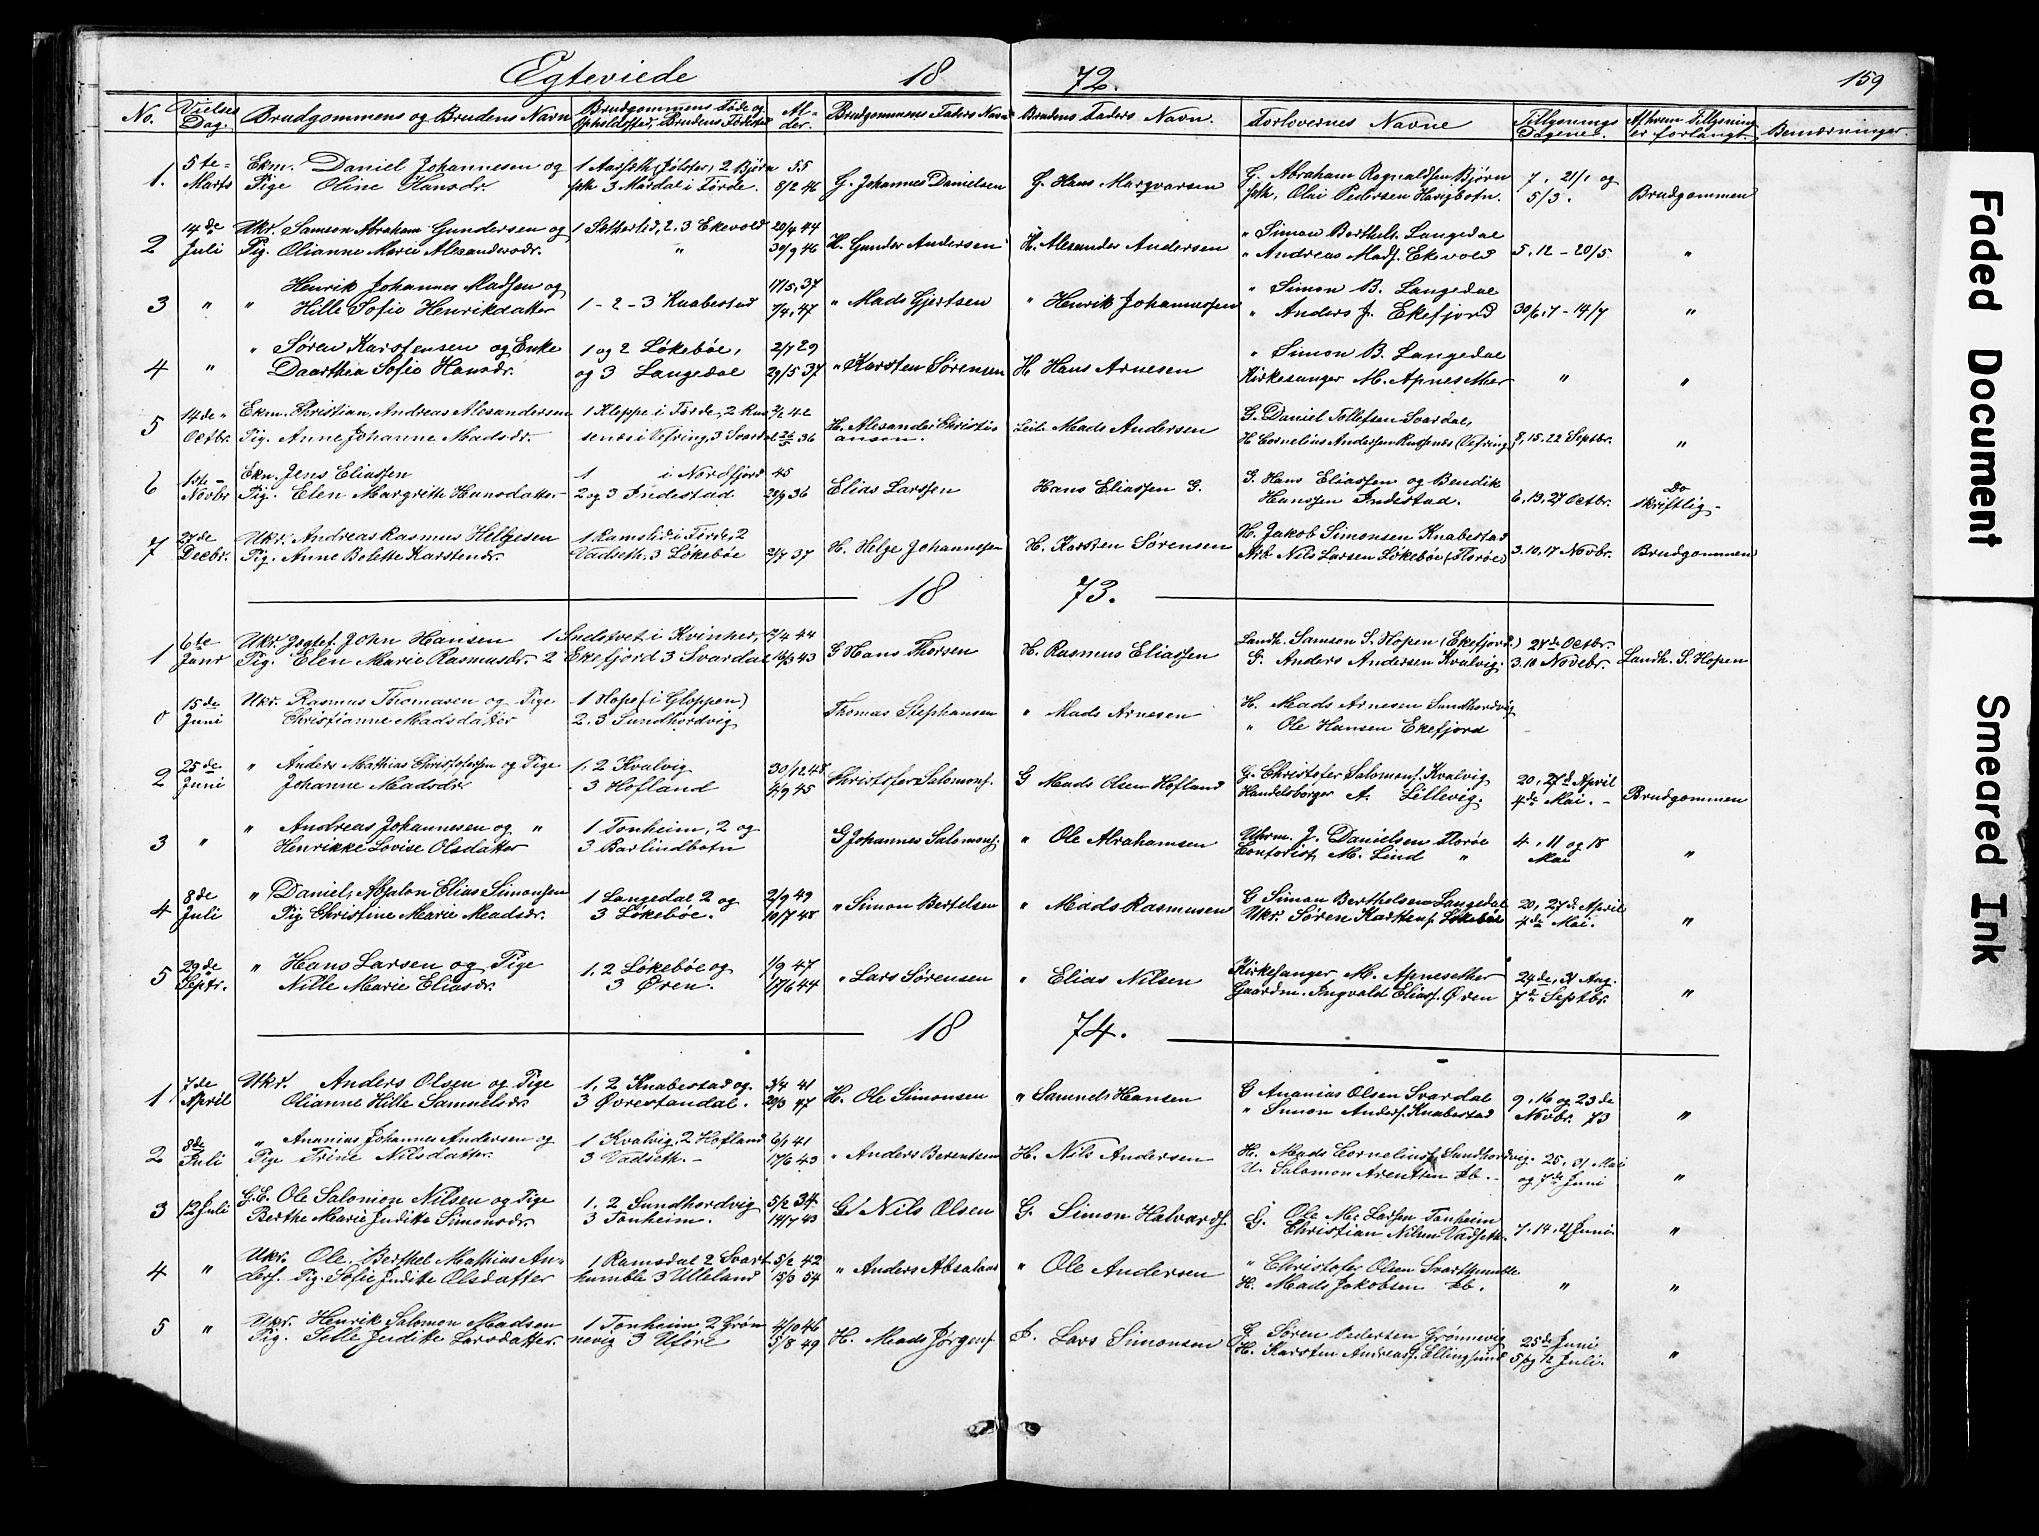 Egteviede 18 72. 159
No. Vielses Dag. Brudgommens og Brudens Navn Brudgommens Føde og Opholdssted, Brudens Fødested Alder. Brudgommens Faders Navn Brudens Faders Navn. Forlovernes Navne Tillysnings Dagene. Af hvem Tillysning er forlangt. Bemærkninger.
1. 5te Marts Ekm. Daniel Johannesen og 1 Aarseth (Jølster, 2 Bjørn 55
Pige Oline Hansdr. seth 3 Mardal i Førde. 8/2 46 G. Johannes Danielsen G. Hans Marqvarsen G. Abraham Ragnaldsen Bjørn seth, Olai Pedersen Havigbotn. 7, 21/1 og 5/3. Brudgommen
2 14de Juli Ukr. Samson Abraham Gundersen og 1 Sætherlid, 2.3 Ekevold 20/4 44
Pig. Olianne Marie Alexandersdr. " 30/9 46 H. Gunder Andersen H. Alexander Andersen " Simon Berthels. Langedal
" Andreas Mads. Ekevold 5, 12 - 20/5. "
3 " " Henrik Johannes Madssen og 17/5, 37
Hille Sofie Henrikdatter 1 - 2 - 3 Knabestad 7/4, 47 " Mads Gjertsen " Henrik Johannessen " Simon B. Langedal
" Anders J. Ekefjord 30/6, 7 - 14/7 "
4 " " Søren Karstensen og Enke 1 og 2 Løkebøe, 2/7 29
Daarthea Sofie Hansdr. og 3 Langedal 29/5 37 " Karsten Sørensen H. Hans Arnesen " Simon B. Langedal
Kirkesanger M. Apnesether " "
5 14de Octbr. Ekm. Christian Andreas Alexandersen 1 Kleppe i Førde, 2 Rus 3/2 42
Pig. Anne Johanne Madsdr. senæs i Vefring, 3 Svardal 26/5 36 H. Alexander Christiansen. Leil. Mads Andersen G. Daniel Tollefsen Svardal,
H. Cornelius Andersen Russenæs (Vefring) 8, 15, 22 Septbr. "
6 1ste Novbr Ekm. Jens Eliassen 1 i Nordfjord 45
Pig. Elen Margrethe Hansdatter 2 og 3 Indestad 28/9 36 Elias Larssen Hans Eliassen G. G. Hans Eliassen og Bendik
Hanssen Indestad. 6, 13, 27 Octbr. Do skriftlig
7 27de Decbr. Ukr. Andreas Rasmus Helgesen 1 Ramslid i Førde, 2
Pig. Anne Bolette Karstendr. Vadseth, 3 Løkebøe 2/7 37 H. Helge Johannessen H. Karsten Sørensen H. Jakob Simonsen Knabestad
Arb. Nils Larsen Løkebøe (Florøe) 3, 10, 17 Novbr. Brudgommen
18 73.
1 6te Janr Ukr. Jegtef. John Hansen 1 Sneltvet i Kvinher, 12/4 44
Pig. Elen Marie Rasmusdr. 2 Ekefjord 3 Svardal 16/3 43 G Hans Thorsen H. Rasmus Eliassen Landh. Samson S. Hopen (Ekefjord)
G. Anders Andersen Kvalvig. 27de Octbr. 3. 10 Novebr. Landh. S. Hopen
0 15de Juni Ukr. Rasmus Thomasen og Pige 1 Hope (i Gloppen)
Christianne Madsdatter 2, 3 Sundhordvig Thomas Stephansen " Mads Arnesen H. Mads Arnesen Sundhordvig
" Ole Hansen Ekefjord
2 25de Juni " Anders Mathias Christofersen og Pige 1, 2 Kvalvig 30/12 48
Johanne Madsdr 3 Hofland 4/9 45 Christofer Salomons. G Mads Olsen Hofland G. Christofer Salomons. Kvalvig
Handelsborger A. Lillevig. 20, 27de April 4de Mai. Brudgommen
3 " " Andreas Johannesen og " 1 Tonheim, 2 og
Henrikke Lovise Olsdatter 3 Barlindbotn G Johannes Salomons. " Ole Abrahamsen Uhrm. J. Danielsen Florøe
Contorist, M. Lind " 4, 11 og 18 Mai "
4 8de Juli " Daniel Absalon Elias Simonsen 1 Langedal 2 og 2/9 49
Pig. Christine Marie Madsdr. 3 Løkebøe. 10/7 48 " Simon Bertelsen " Mads Rasmusen G Simon Berthelsen Langedal
Ukr. Søren Karstens. Løkebøe 20, 27de April 4de Mai. "
5 29de Septr. " Hans Larsen og Pige 1, 2 Løkebøe og 1/9 47
Nille Marie Eliasdr. 3 Øren. 17/6 44 " Lars Sørensen " Elias Nilsen Kirkesanger M. Apnesether
Gaardm. Ingvald Elias. Øren 24de, 31 Aug. 7de Septbr. "
18 74.
1 7de April Ukr. Anders Olsen og Pige 1, 2 Knabestad og. 3/4 41
Olianne Hille Samuelsdr. 3 Øvrestandal. 20/3 47 H. Ole Simonsen " Samuel Hansen G Ananias Olsen Svardal
" Simon Anders. Knabestad 9, 16 og 23de Novbr. 73 "
2 8de Juli " Ananias Johannes Andersen og 1 Kvalvig, 2 Hofland 6/1 41
Pige Trine Nilsdatter. 3 Vadseth. 17/6 43 " Anders Berentsen H. Nils Andersen H. Mads Cornelius. Sundhordvig.
U. Salomon Arentsen Sb. 25, 31 Mai og 7de Juni "
3 12 Juli G.E. Ole Salomon Nilsen og Pige 1, 2 Sundhordvig 5/2 34
Berthe Marie Judithe Simonsdr. 3 Tonheim. 14/7 43 G. Nils Olsen G. Simon Halvards. G. Ole M. Larsen Tonheim
Christian Nilsen Vadseth 7, 14, 21 Juni "
4 " Ukr. Ole Berthel Mathias An- 1 Ramsdal 2 Svart 5/2 42
ders. Pig. Sofie Judike Olsdatter humble 3 Ulleland 13/3 54 " Anders Absalons " Ole Andersen " Christofer Olsen Svarthumle
H. Mads Jakobsen Sb. " "
5 " Ukr. Henrik Salomon Madsen 1 Tonheim 2 Grøn 4/10 46
Pig. Sille Judike Larsdatter. nevig 3 Uføre 5/8 49 H. Mads Jørgens. F. Lars Simonsen G. Søren Pedersen Grønnevig
H. Karsten Andreas. Ellingsund 25de Juni 5 og 12 Juli. "
Faded Document
Smeared Ink